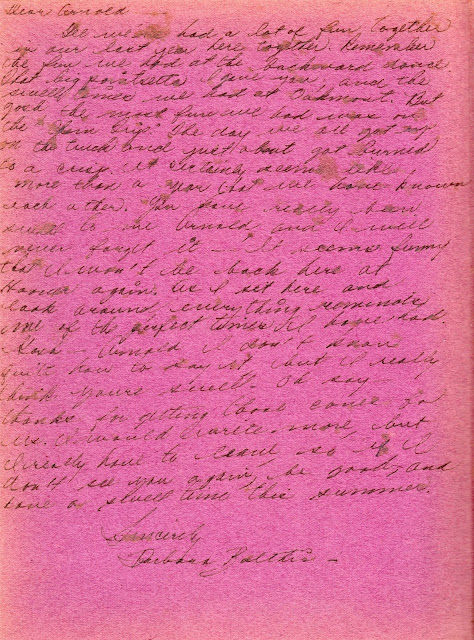 Dear Arnold
Gee we had a lot of fun together
in our last year here together. Remember
the fun we had at the Backward dance.
that big I gave you, and the
swell times we had at Oakmont. But
gosh the most fun we had was on
the "Farm Trip." The day we all got up
on the truck and just about got burned
to a crisp. It certainly seems like
more than a year that we have known
each other. You have really been
swell to me Arnold and I will
never forget it — It seems funny
that I won't be back here at
Hoover again. As I set here and
look around everything reminds
me of the perfect times I've had.
Gosh — Arnold I don't know
quite how to say it, but I really
think you're swell. Oh say
thanks in getting
I would write more, but
I really have to leave so if I
don't see you again, be good, and
have a swell time this summer.
Sincerely
Barbara